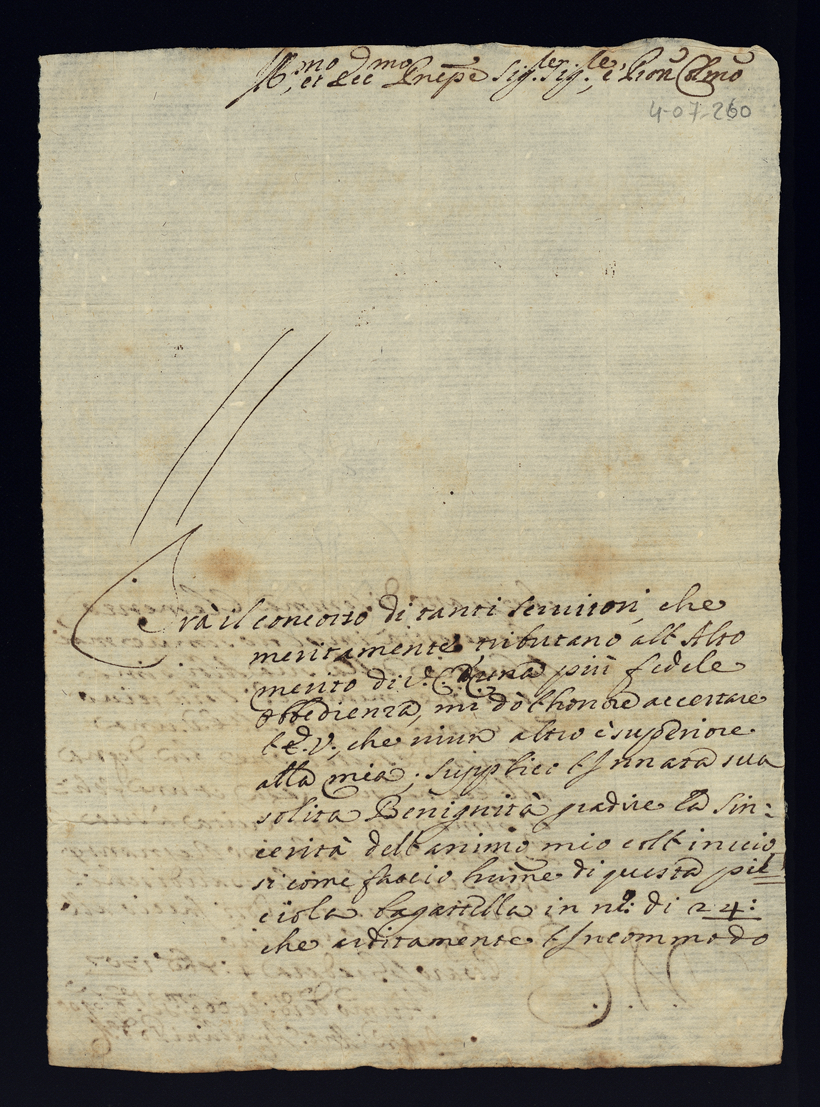 Ill.mo, et Ecc.mo Prñpe Sig.re Sig.re, e Pron Colmo
4-07-260
Trà il concorso di tanti seruitori, che
meritamente tributano all'Alto
merito di V. E. una più fedele
obbedienza, mi dò l'honore accertare
l'E. V., che niun altro è superiore
alla mia; supplico l'Innata sua
solita Benignità gradire la sin:
cerità dell'animo mio coll'inuio
si come faccio hum.e di questa pic=
ciola bagattella in n.o di 24:
che arditamente l'Incommodo